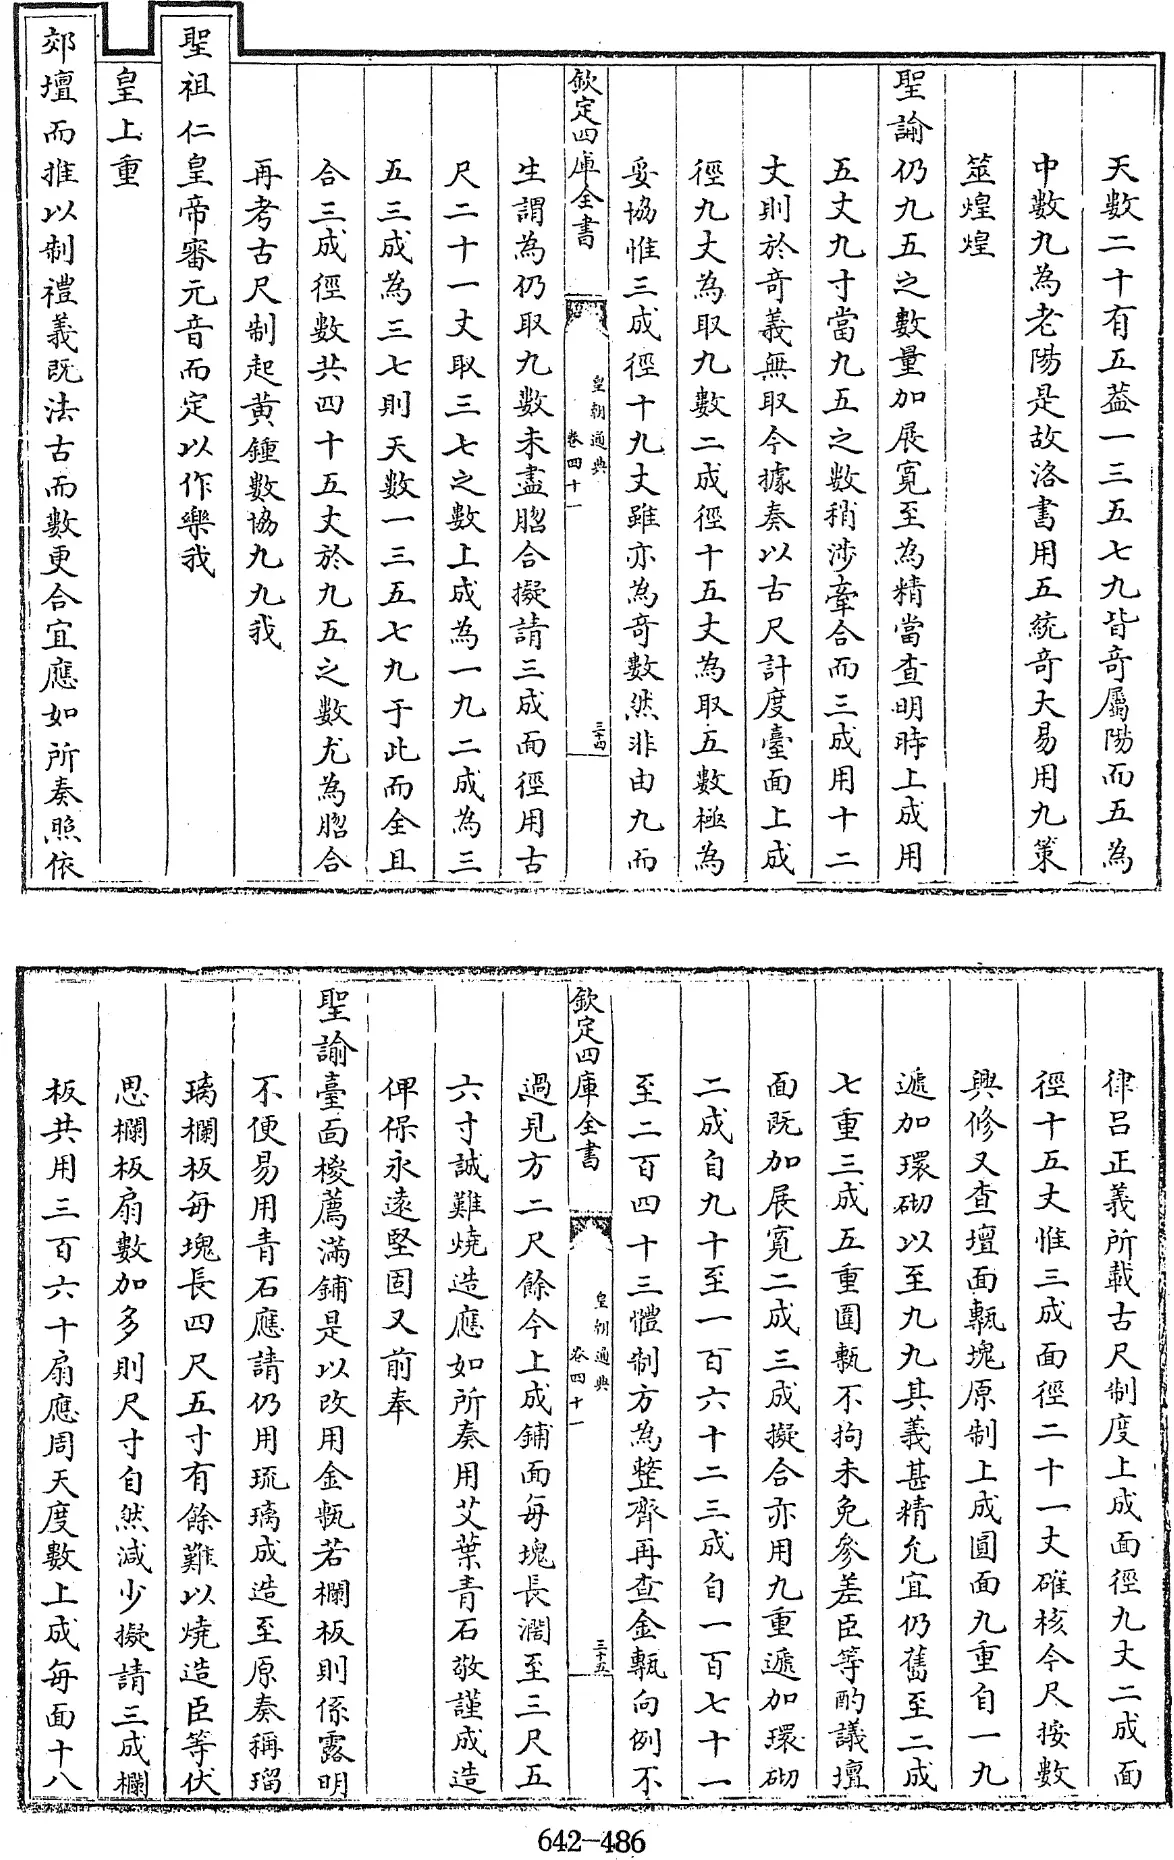 天數二十有五葢一三五七九皆奇屬陽而五為
中數九為老陽是故洛書用五統奇大易用九策
筮煌煌
聖諭仍九五之數量加展寛至為精當查明時上成用
五丈九寸當九五之數稍涉牽合而三成用十二
丈則於奇義無取今據奏以古尺計度臺面上成
徑九丈為取九數二成徑十五丈為取五數極為
妥協惟三成徑十九丈雖亦為奇數然非由九而
欽定四庫全書
皇朝通典
卷四十一
三十四
生謂為仍取九數未盡脗合擬請三成面徑用古
尺二十一丈取三七之數上成為一九二成為三
五三成為三七則天數一三五七九于此而全且
合三成徑數共四十五丈於九五之數尤為脗合
再考古尺制起黄鍾數協九九我
聖祖仁皇帝審元音而定以作樂我
皇上重
郊壇而推以制禮義既法古而數更合宜應如所奏照依
律吕正義所載古尺制度上成面徑九丈二成面
徑十五丈惟三成面徑二十一丈確核今尺按數
興修又查壇面甎塊原制上成圓面九重自一九
遞加環砌以至九九其義甚精允宜仍舊至二成
七重三成五重圍甎不拘未免參差臣等酌議壇
面既加展寛二成三成擬合亦用九重遞加環砌
二成自九十至一百六十二三成自一百七十一
至二百四十三體制方為整齊再查金甎向例不
欽定四庫全書
皇朝通典
卷四十一
三十五
過見方二尺餘今上成鋪面每塊長濶至三尺五
六寸誠難燒造應如所奏用艾葉青石敬謹成造
俾保永遠堅固又前奉
聖諭臺面椶薦滿鋪是以改用金甎若欄板則係露明
不便易用青石應請仍用琉璃成造至原奏稱瑠
璃欄板每塊長四尺五寸有餘難以燒造臣等伏
思欄板扇數加多則尺寸自然減少擬請三成欄
板共用三百六十扇應周天度數上成每面十八
642-486